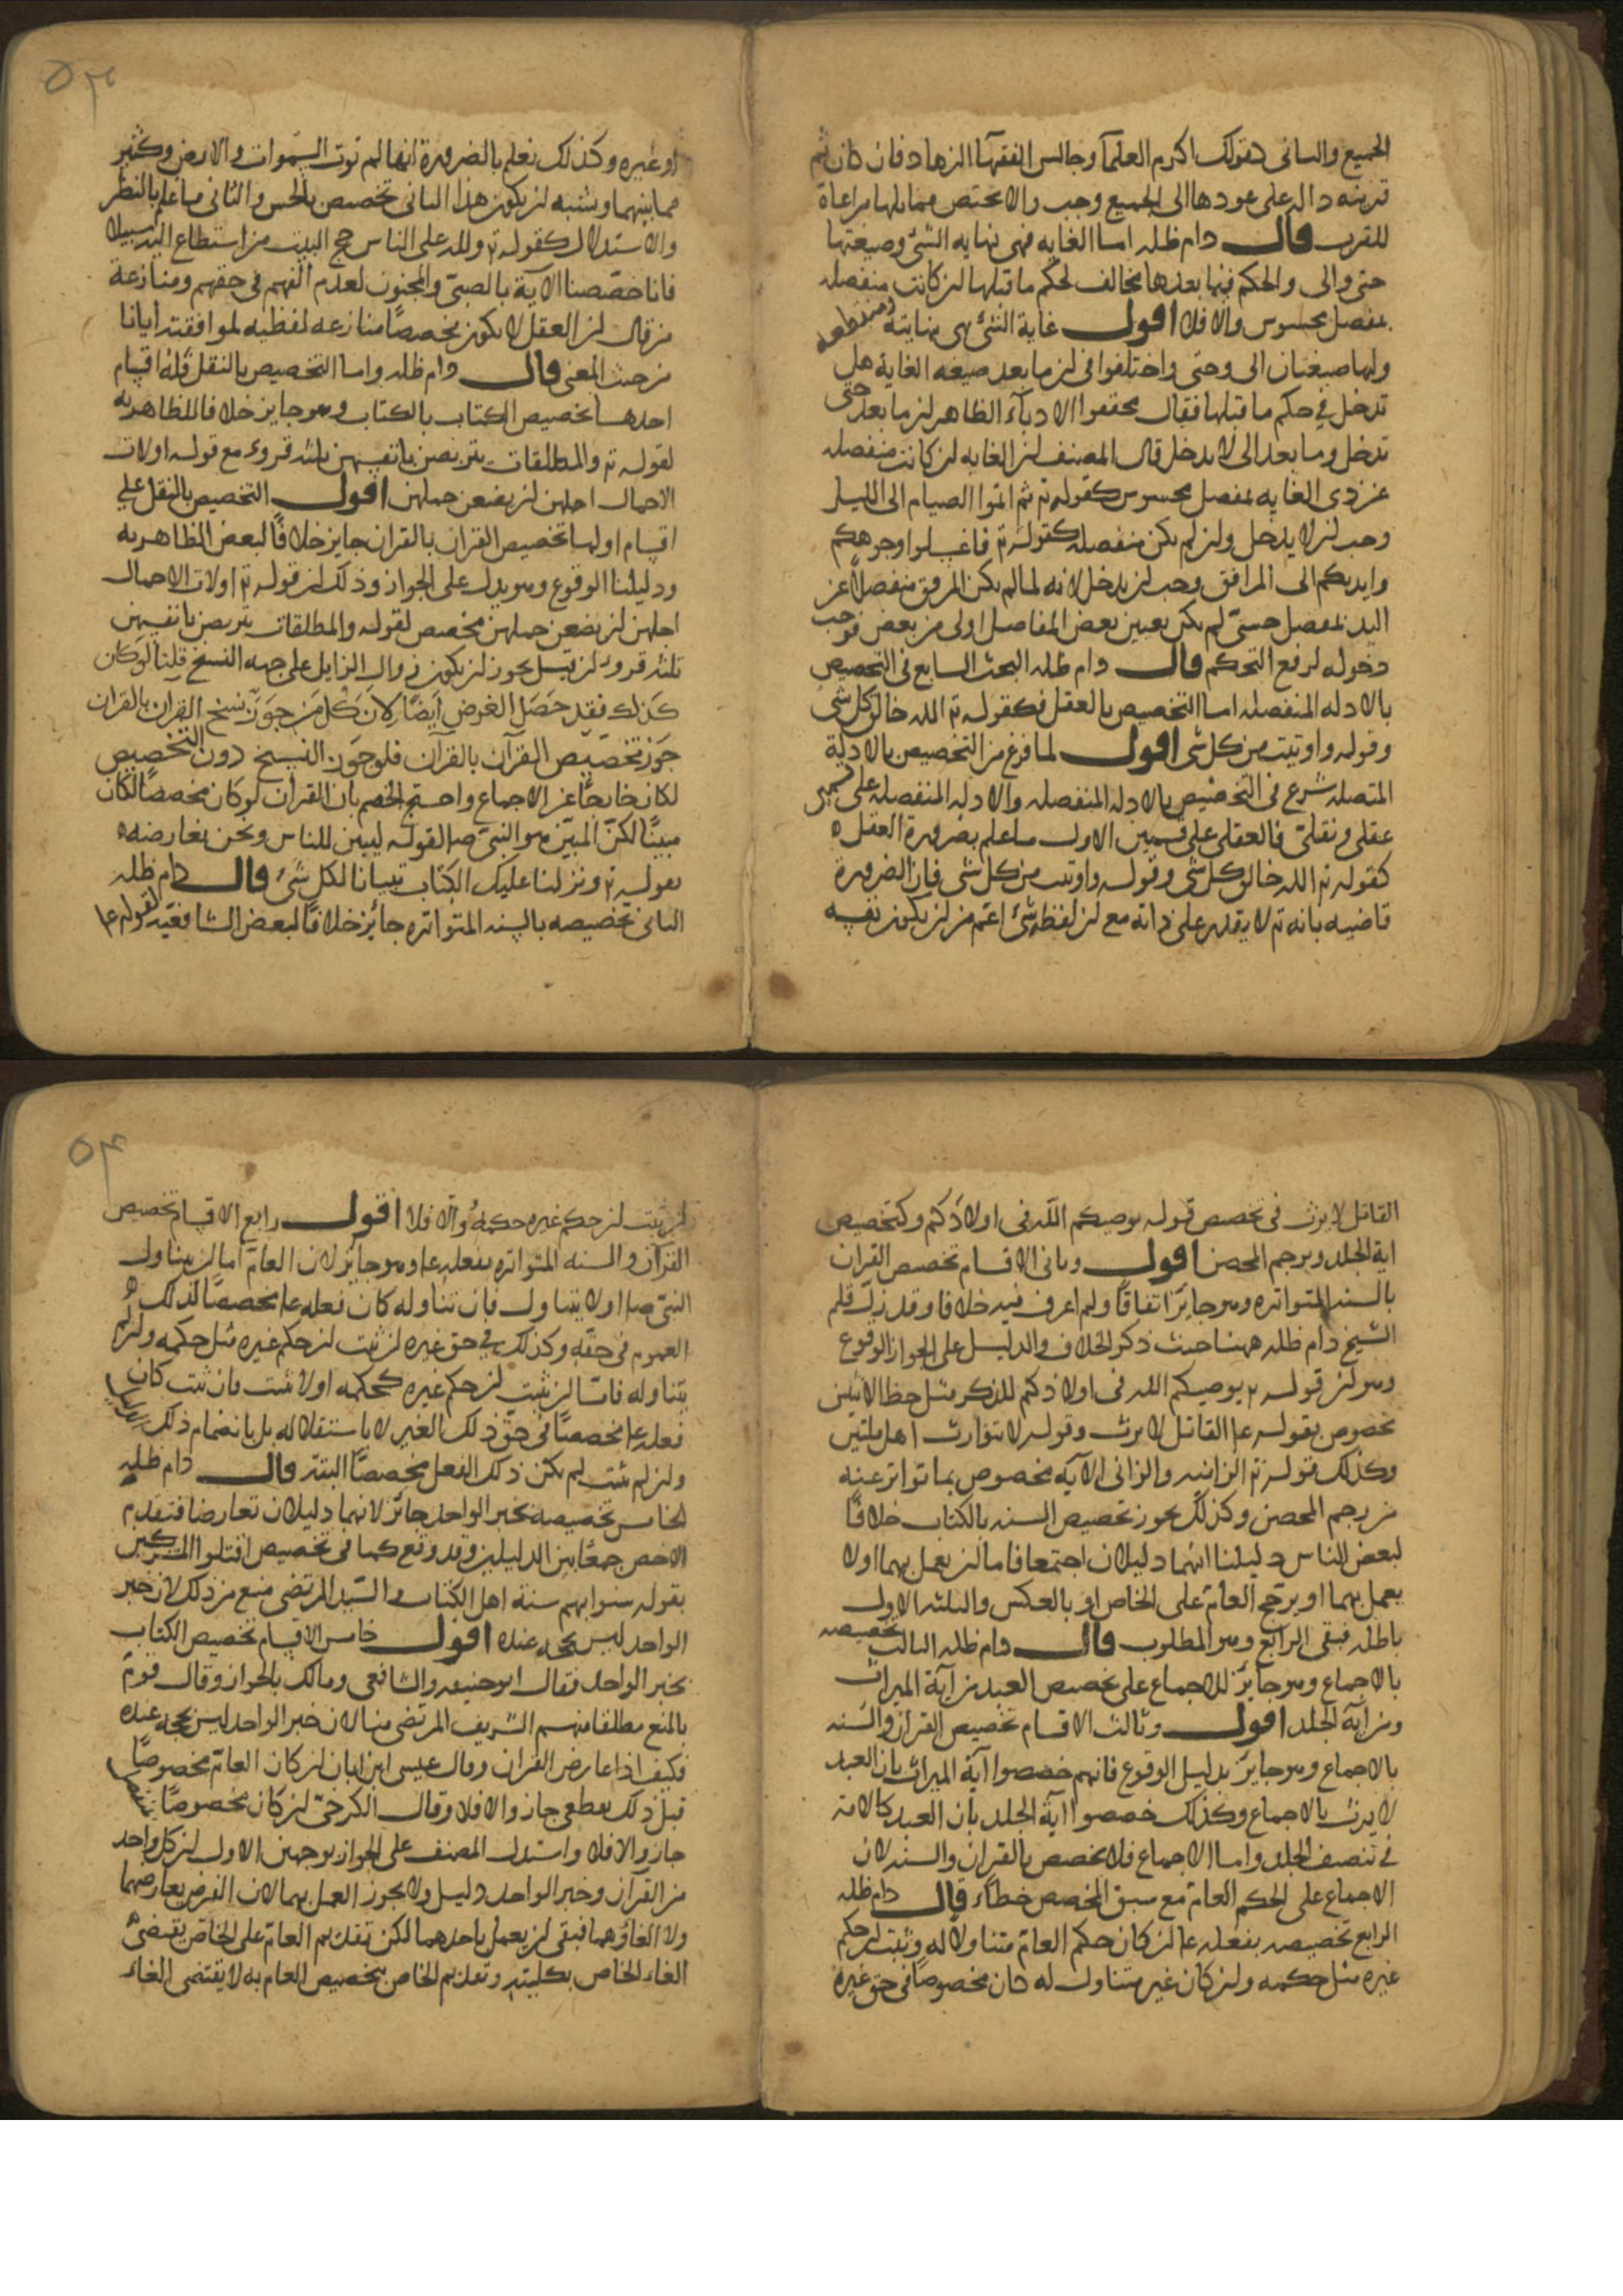 الجميع والثانى كقولك اكرم العلمآ وجالس الفقهآ الزهاد فان كان ثم
قرينه داله على عودها الى الجميع وجب والا يختص مما يليها مراعاة
للقرب قال دام ظله اما الغايه فهى نهايه الشئ وصيغتها
حتى والى والحكم فيما بعدها مخالف لحكم ما قبلها ان كانت منفصله
بمفصل محسوس والا فلا اقول غاية الشئ هى نهايته ومنقطعه
ولها صيغتان الى وحتى واختلفوا فى ان ما بعد صيغه الغاية هل
تدخل فى حكم ما قبلها فقال محققوا الادبآء الظاهر ان ما بعد حتى
تدخل وما بعد الى لا يدخل قال المصنف ان الغايه ان كانت منفصله
عن ذى الغايه بمفصل محسوس كقوله تع ثم اتموا الصيام الى الليل
وجب ان لا يدخل وان لم يكن منفصله كقوله تع فاغسلوا وجوهكم
وايديكم الى المرافق وجب ان يدخل لانه لما لم يكن المرفق منفصلا عن
اليد بمفصل حسىّ لم يكن تعيين بعض المفاصل اولى من بعض فوجب
دخوله لرفع التحكم قال دام ظله البحث السابع فى التخصيص
بالادله المنفصله اما التخصيص بالعقل فكقوله تع الله خالق كل شى
وقوله واوتيت من كل شى اقول لما فرغ من التخصيص بالادلة
المتصله شرع فى التخصيص بالادله المنفصله والادله المنفصله على قسمين
عقلى ونقلىّ فالعقلى على قسمين الاول ما علم بضرورة العقل
كقوله تع الله خالق كل شى وقوله واوتيت من كل شى فان الضرورة
قاضيه بانه تع لا يقدر على ذاته مع ان لفظه شئ اعم من ان يكون نفسه
٥٣
او غيره وكذلك نعلم بالضرورة انها لم توت السموات والارض وكثير
مما بينهما ويشبه ان يكون هذا الثانى تخصيص بالحس والثانى ما علم بالنظر
والاستدلال كقوله تع ولله على الناس حج البيت من استطاع اليه سبيلا
فانا خصّصنا الآية بالصبىّ والمجنون لعدم الفهم فى حقهم ومنازعة
من قال ان العقل لا يكون مخصصًا منازعه لفظيه لموافقته ايانا
من حيث المعنى قال دام ظله واما التخصيص بالنقل فله اقسام
احدها تخصيص الكتاب بالكتاب وهو جايز خلافا للظاهريه
لقوله تع والمطلقات يتربصن بانفسهن ثلثه قروء مع قوله اولات
الاحمال اجلهن ان يضعن حملهن اقول التخصيص بالنقل على
اقسام اولها تخصيص القران بالقران جايز خلافًا لبعض الظاهريه
ودليلنا الوقوع وهو يدل على الجواز وذلك ان قوله تع اولات الاحمال
اجلهن ان يضعن حملهن مخصص لقوله والمطلقات يتربصن بانفسهن
ثلثه قروء ان قيل يجوز ان يكون زوال الزايل على جهه النسخ قلنا لو كان
كذلك فقد حَصَل الغرض ايضًا لان كل من جَوّز نسخ القران بالقران
جَوّز تخصيص القرآن بالقرآن فلو جوّز النسخ دون التخصيص
لكان خارجًا عن الاجماع واحتج الخصم بان القرآن لو كان مخصصًا لكان
مبينًا لكن المبيّن هو النبىّ ص لقوله ليبين للناس ونحن نعارضه
بقوله تع ونزلنا عليك الكتاب تبيانا لكل شئ قال دام ظله
الثانى تخصيصه بالسنه المتواتره جائز خلافًا لبعض الشافعيّه لقوله ع
القاتل لا يرث فى تخصص قوله يوصيكم الله فى اولادكم وكتخصيص
اية الجلد وبرجم المحصن اقول وثانى الاقسام تخصيص القران
بالسنه المتواتره وهو جايز اتفاقًا ولم اعرف فيه خلافا وقد زلّ قلم
الشيخ دام ظله ههنا حيث ذكر الخلاف والدليل على الجواز الوقوع
وهو ان قوله تع يوصيكم الله فى اولادكم للذكر مثل حظ الانثيين
مخصوص بقوله ع القاتل لا يرث وقوله لا يتوارث اهل ملتين
وكذلك قوله تع الزانيه والزانى الآيه مخصوص بما تواتر عنه
من رجم المحصن وكذلك يجوز تخصيص السنه بالكتاب خلافًا
لبعض الناس دليلنا انهما دليلان اجتمعا فاما ان يعمل بهما اولا
يعمل بهما او يرجح العام على الخاص او بالعكس والثلثه الاول
باطله فبقى الرابع وهو المطلوب قال دام ظله الثالث تخصيصه
بالاجماع وهو جايز للاجماع على تخصيص العبد من آية الميراث
ومن آية الجلد اقول وثالث الاقسام تخصيص القران والسنه
بالاجماع وهو جايز بدليل الوقوع فانهم خصصوا آية الميراث بان العبد
لا يرث بالاجماع وكذلك خصصوا اية الجلد بان العبد كالامة
فى تنصف الجلد واما الاجماع فلا يخصص بالقران والسنه لان
الاجماع على الحكم العام مع سبق المخصص خطآء قال دام ظله
الرابع تخصيصه بفعله ع ان كان حكم العام متناولا له وثبت ان حكم
غيره مثل حكمه وان كان غير متناول له كان مخصوصًا فى حق غيره
٥٤
ان ثبت ان حكم غيره حكمه والا فلا اقول رابع الاقسام تخصيص
القرآن والسنه المتواتره بفعله ع وهو جايز لان العام اما ان يتناول
النبىّ ص اولا يتناول فان تناوله كان فعله ع مخصصًا لذلك
العموم فى حقه وكذلك فى حق غيره ان ثبت ان حكم غيره مثل حكمه وان لم
يتناوله فاما ان يثبت ان حكم غيره كحكمه اولا يثبت فان ثبت كان
فعله ع مخصصًا فى حق ذلك الغير لا باستقلاله بل بانضمام ذلك الدليل
وان لم يثبت لم يكن ذلك الفعل مخصصًا البتة قال دام ظله
الخامس تخصيصه بخبر الواحد جائز لانهما دليلان تعارضا فتقدم
الاخص جمعًا بين الدليلين وقد وقع كما فى تخصيص اقتلوا المشركين
بقوله سنوا بهم سنة اهل الكتاب والسّيد المرتضى منع من ذلك لان خبر
الواحد ليس بحجه عنده اقول خامس الاقسام تخصيص الكتاب
بخبر الواحد فقال ابو حنيفه والشافعى ومالك بالجواز وقال قوم
بالمنع مطلقا منهم الشريف المرتضى منها لان خبر الواحد ليس بحجه عنده
فكيف اذا عارض القران وقال عيسى ابن ابان ان كان العام مخصوصًا
قبل ذلك بقطعى جاز والا فلا وقال الكرخىّ ان كان مخصوصًا بمنفصل
جاز والا فلا واستدل المصنف على الجواز بوجهين الاول ان كل واحد
من القرآن وخبر الواحد دليل ولا يجوز العمل بهما لان الفرض تعارضهما
ولا الغاؤهما فبقى ان يعمل باحدهما لكن تقديم العام على الخاص يقتضى
الغاء الخاص بكليته وتقديم الخاص بتخصيص العام به لا يقتضى الغاء